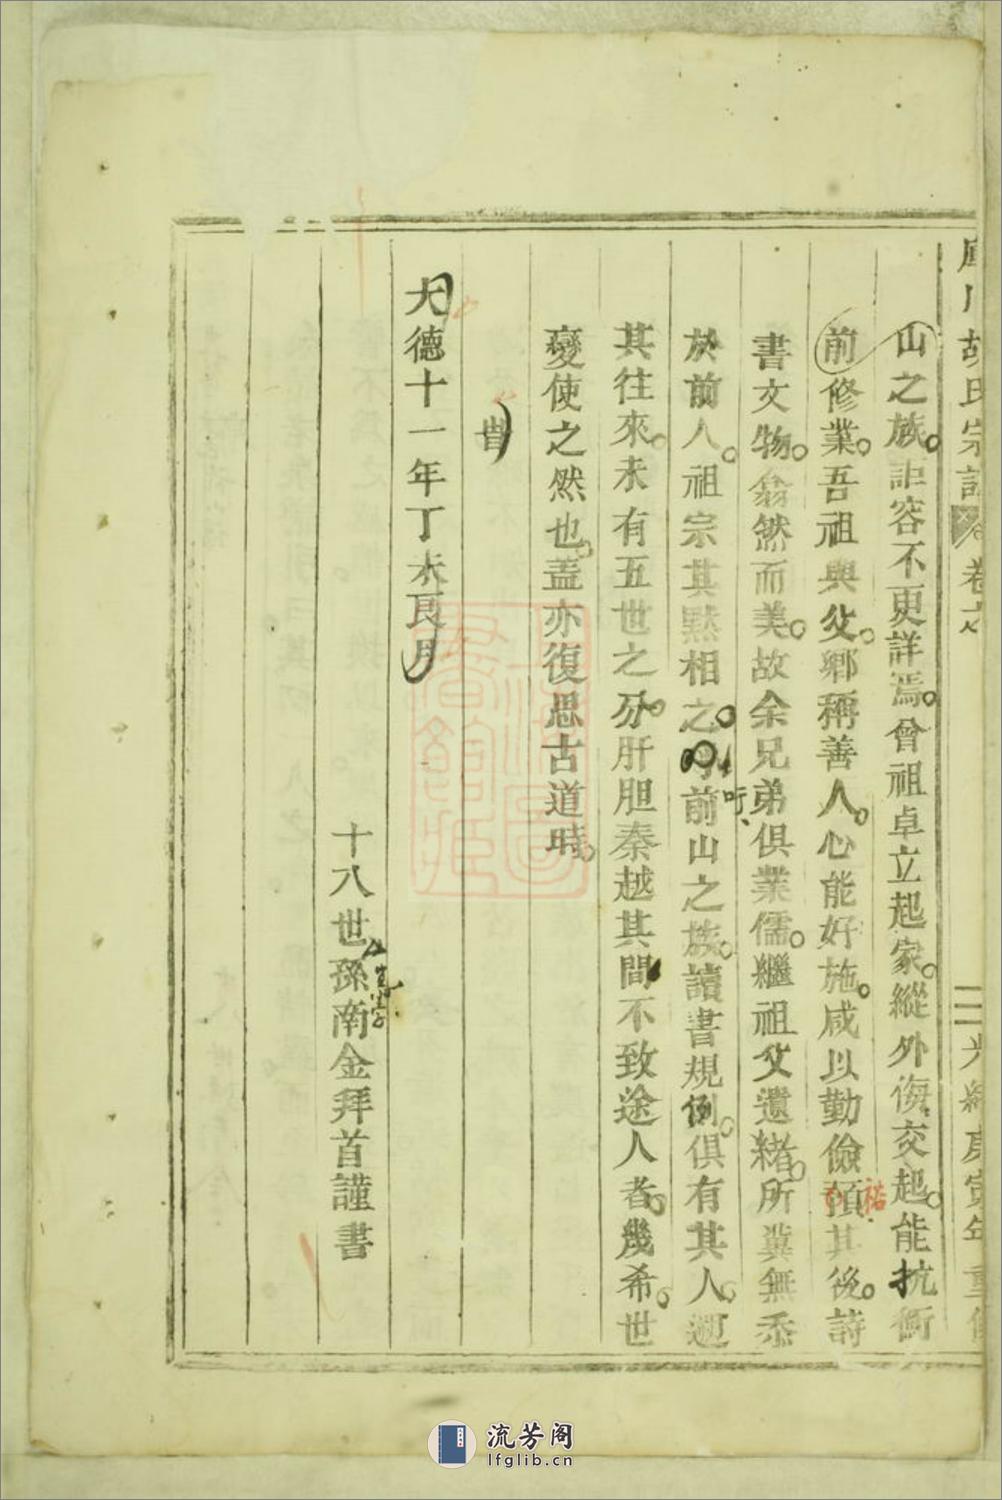 胡氏宗譜 卷之 二 光緒庚寅年重修
山之族詎容不更詳焉曾祖卓立起家縱外侮交起能抗衡
前修業吾祖與父鄉稱善人心能好施咸以勤儉預其後詩
裕
書文物翁然而美故余兄弟俱業儒繼祖父遺緒所冀無忝
於前人祖宗其黙相之吁前山之族讀書規例俱有其人邇
吁
其往來未有五世之分肝胆秦越其間不致途人者幾希世
變使之然也盖亦復思古道時
旹
大德十一年丁未良月
十八世孫南金拜首謹書
流芳阁
lfglib.cn